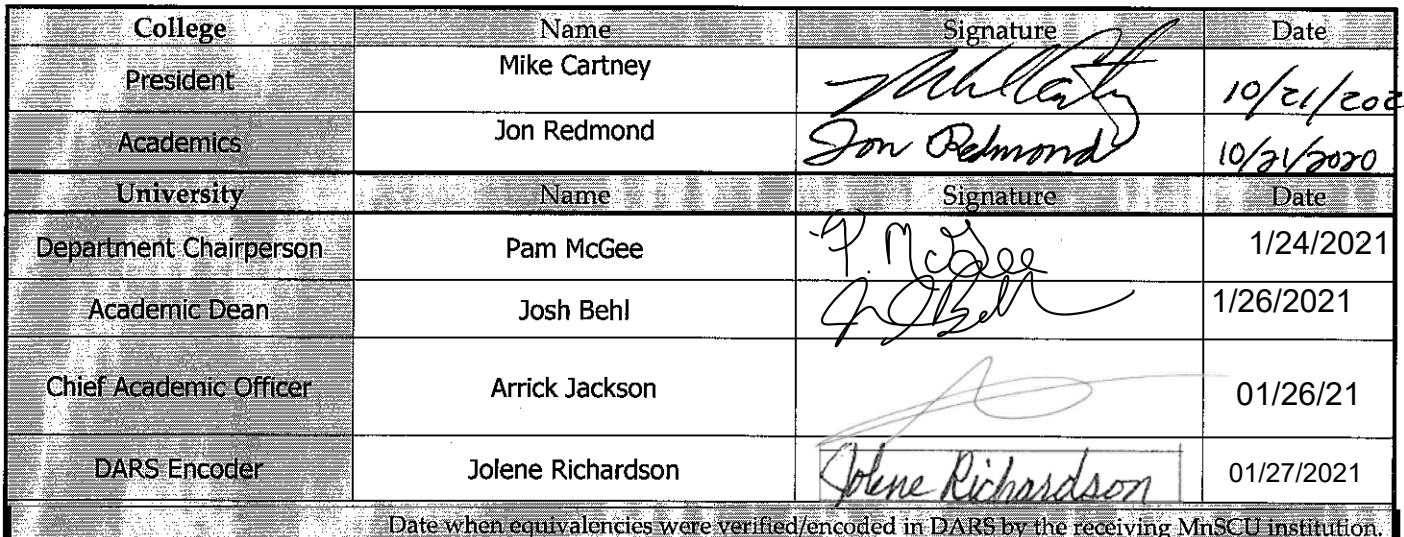 College Name Signature Date
President Mike Cartney 10/21/202
Academics Jon Redmond Jon Redmond 10/21/2020
University Name Signature Date
Department Chairperson Pam McGee P. McGee 1/24/2021
Academic Dean Josh Behl J Behl 1/26/2021
Chief Academic Officer Arrick Jackson 01/26/21
DARS Encoder Jolene Richardson Jolene Richardson 01/27/2021
Date when equivalencies were verified/encoded in DARS by the receiving MnSCU institution.